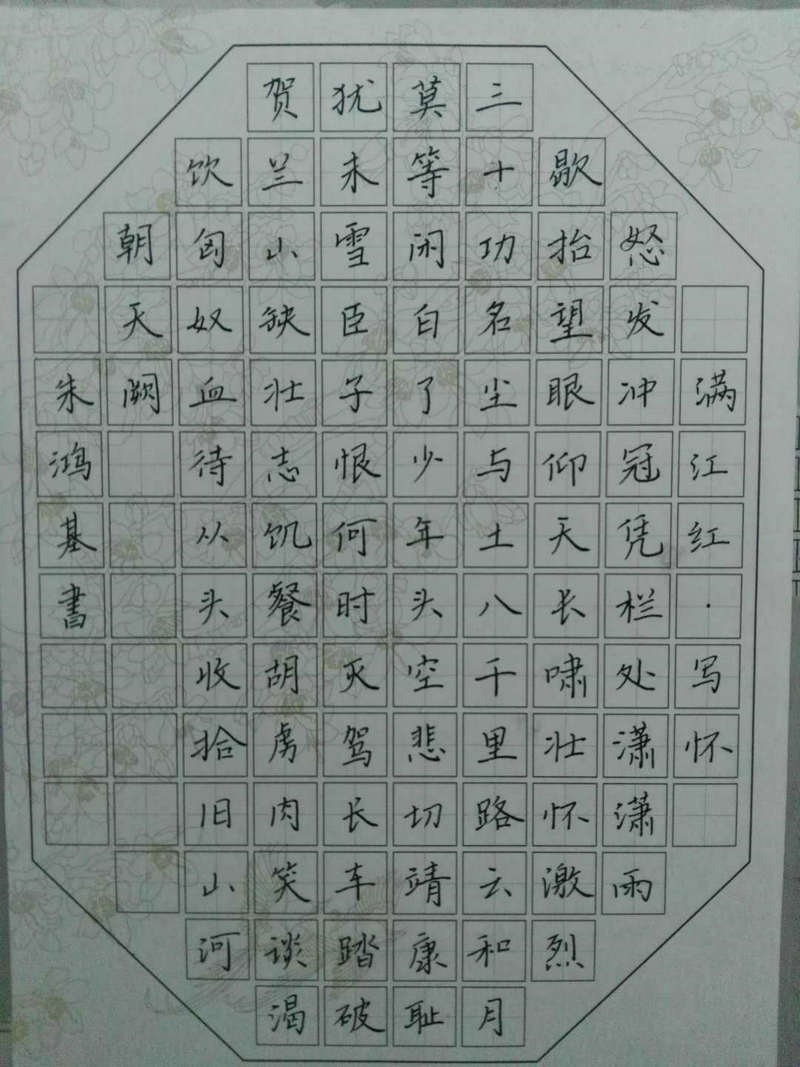 满江红·写怀
怒发冲冠凭栏处潇潇雨
歇抬望眼仰天长啸壮怀激烈
三十功名尘与土八千里路云和月
莫等闲白了少年头空悲切靖康耻
犹未雪臣子恨何时灭驾长车踏破
贺兰山缺壮志饥餐胡虏肉笑谈渴
饮匈奴血待从头收拾旧山河
朝天阙
朱鸿基書